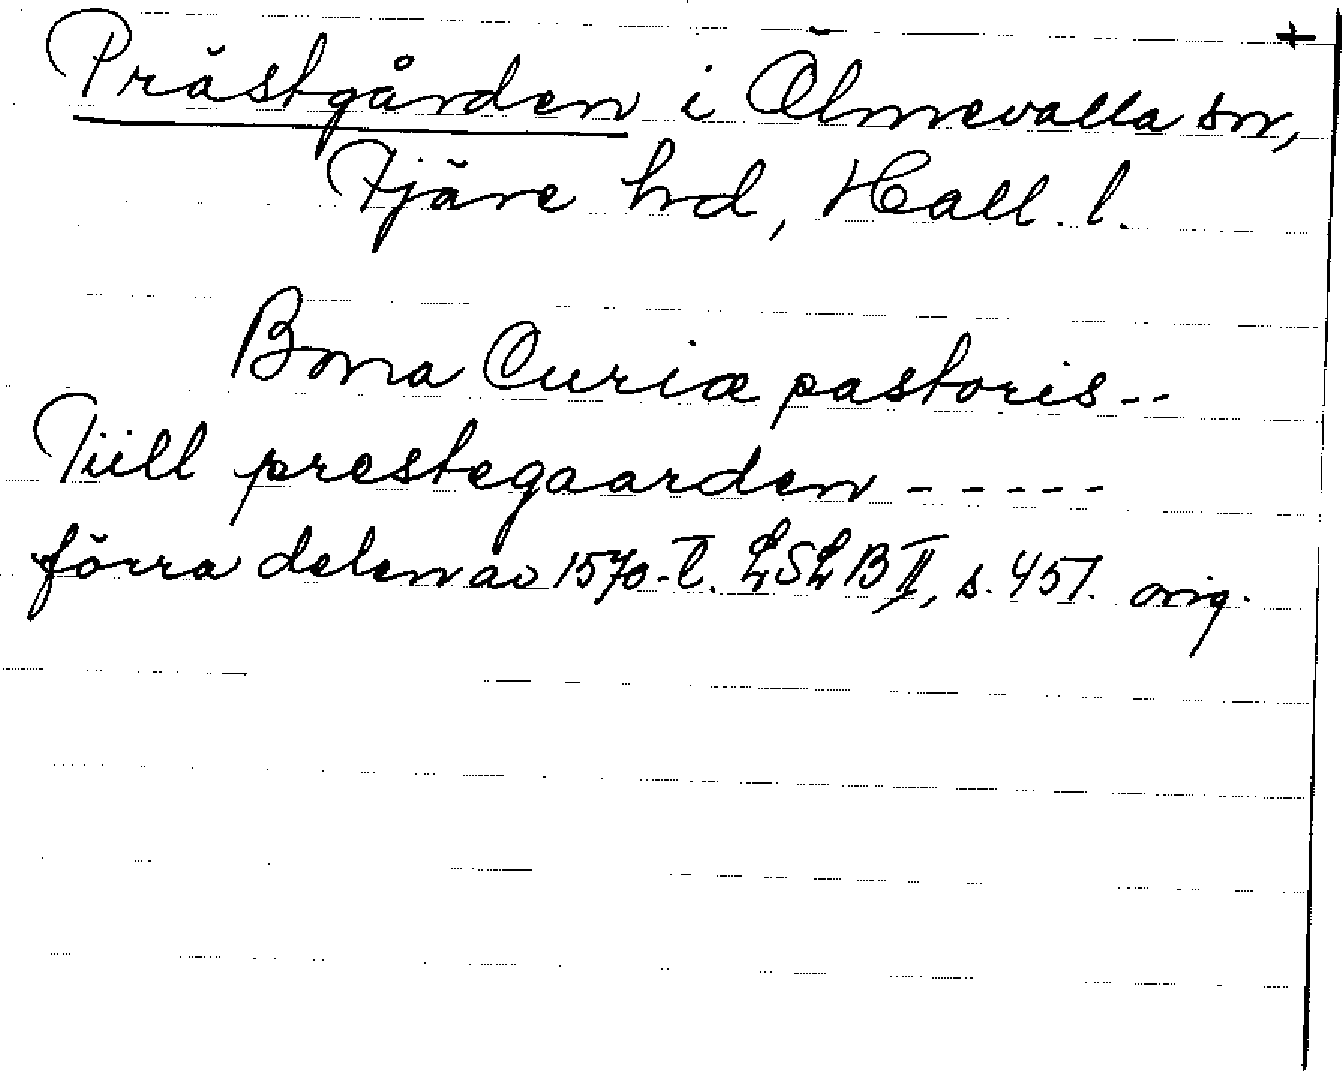 +
Prästgården i Ölmevalla sn,
Fjäre hd, Hall. l.
Bona Curiæ pastoris --
Tiill prestegaarden -----
förra delen av 1570-t. LSLB II, s. 451. orig.